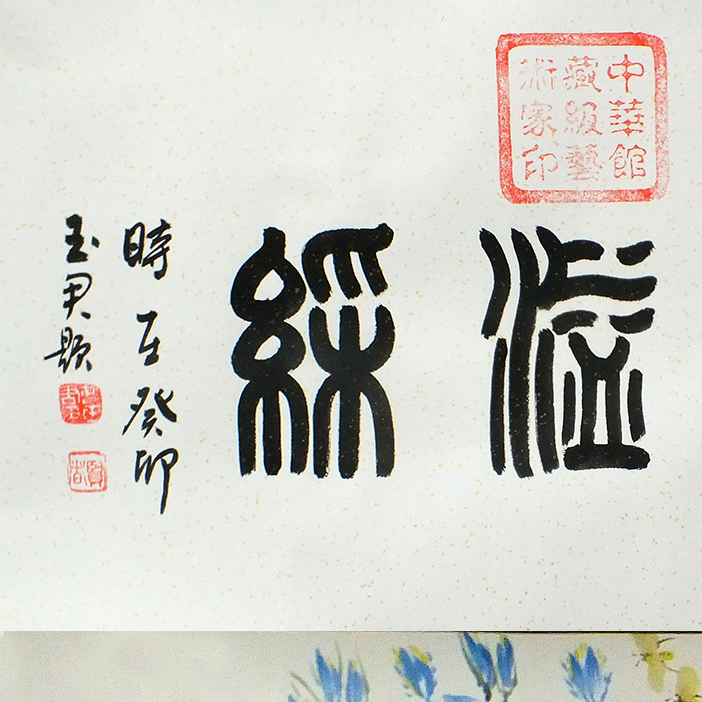 中華館
藏級藝
術家印
溢綵
時在癸卯
玉尹題